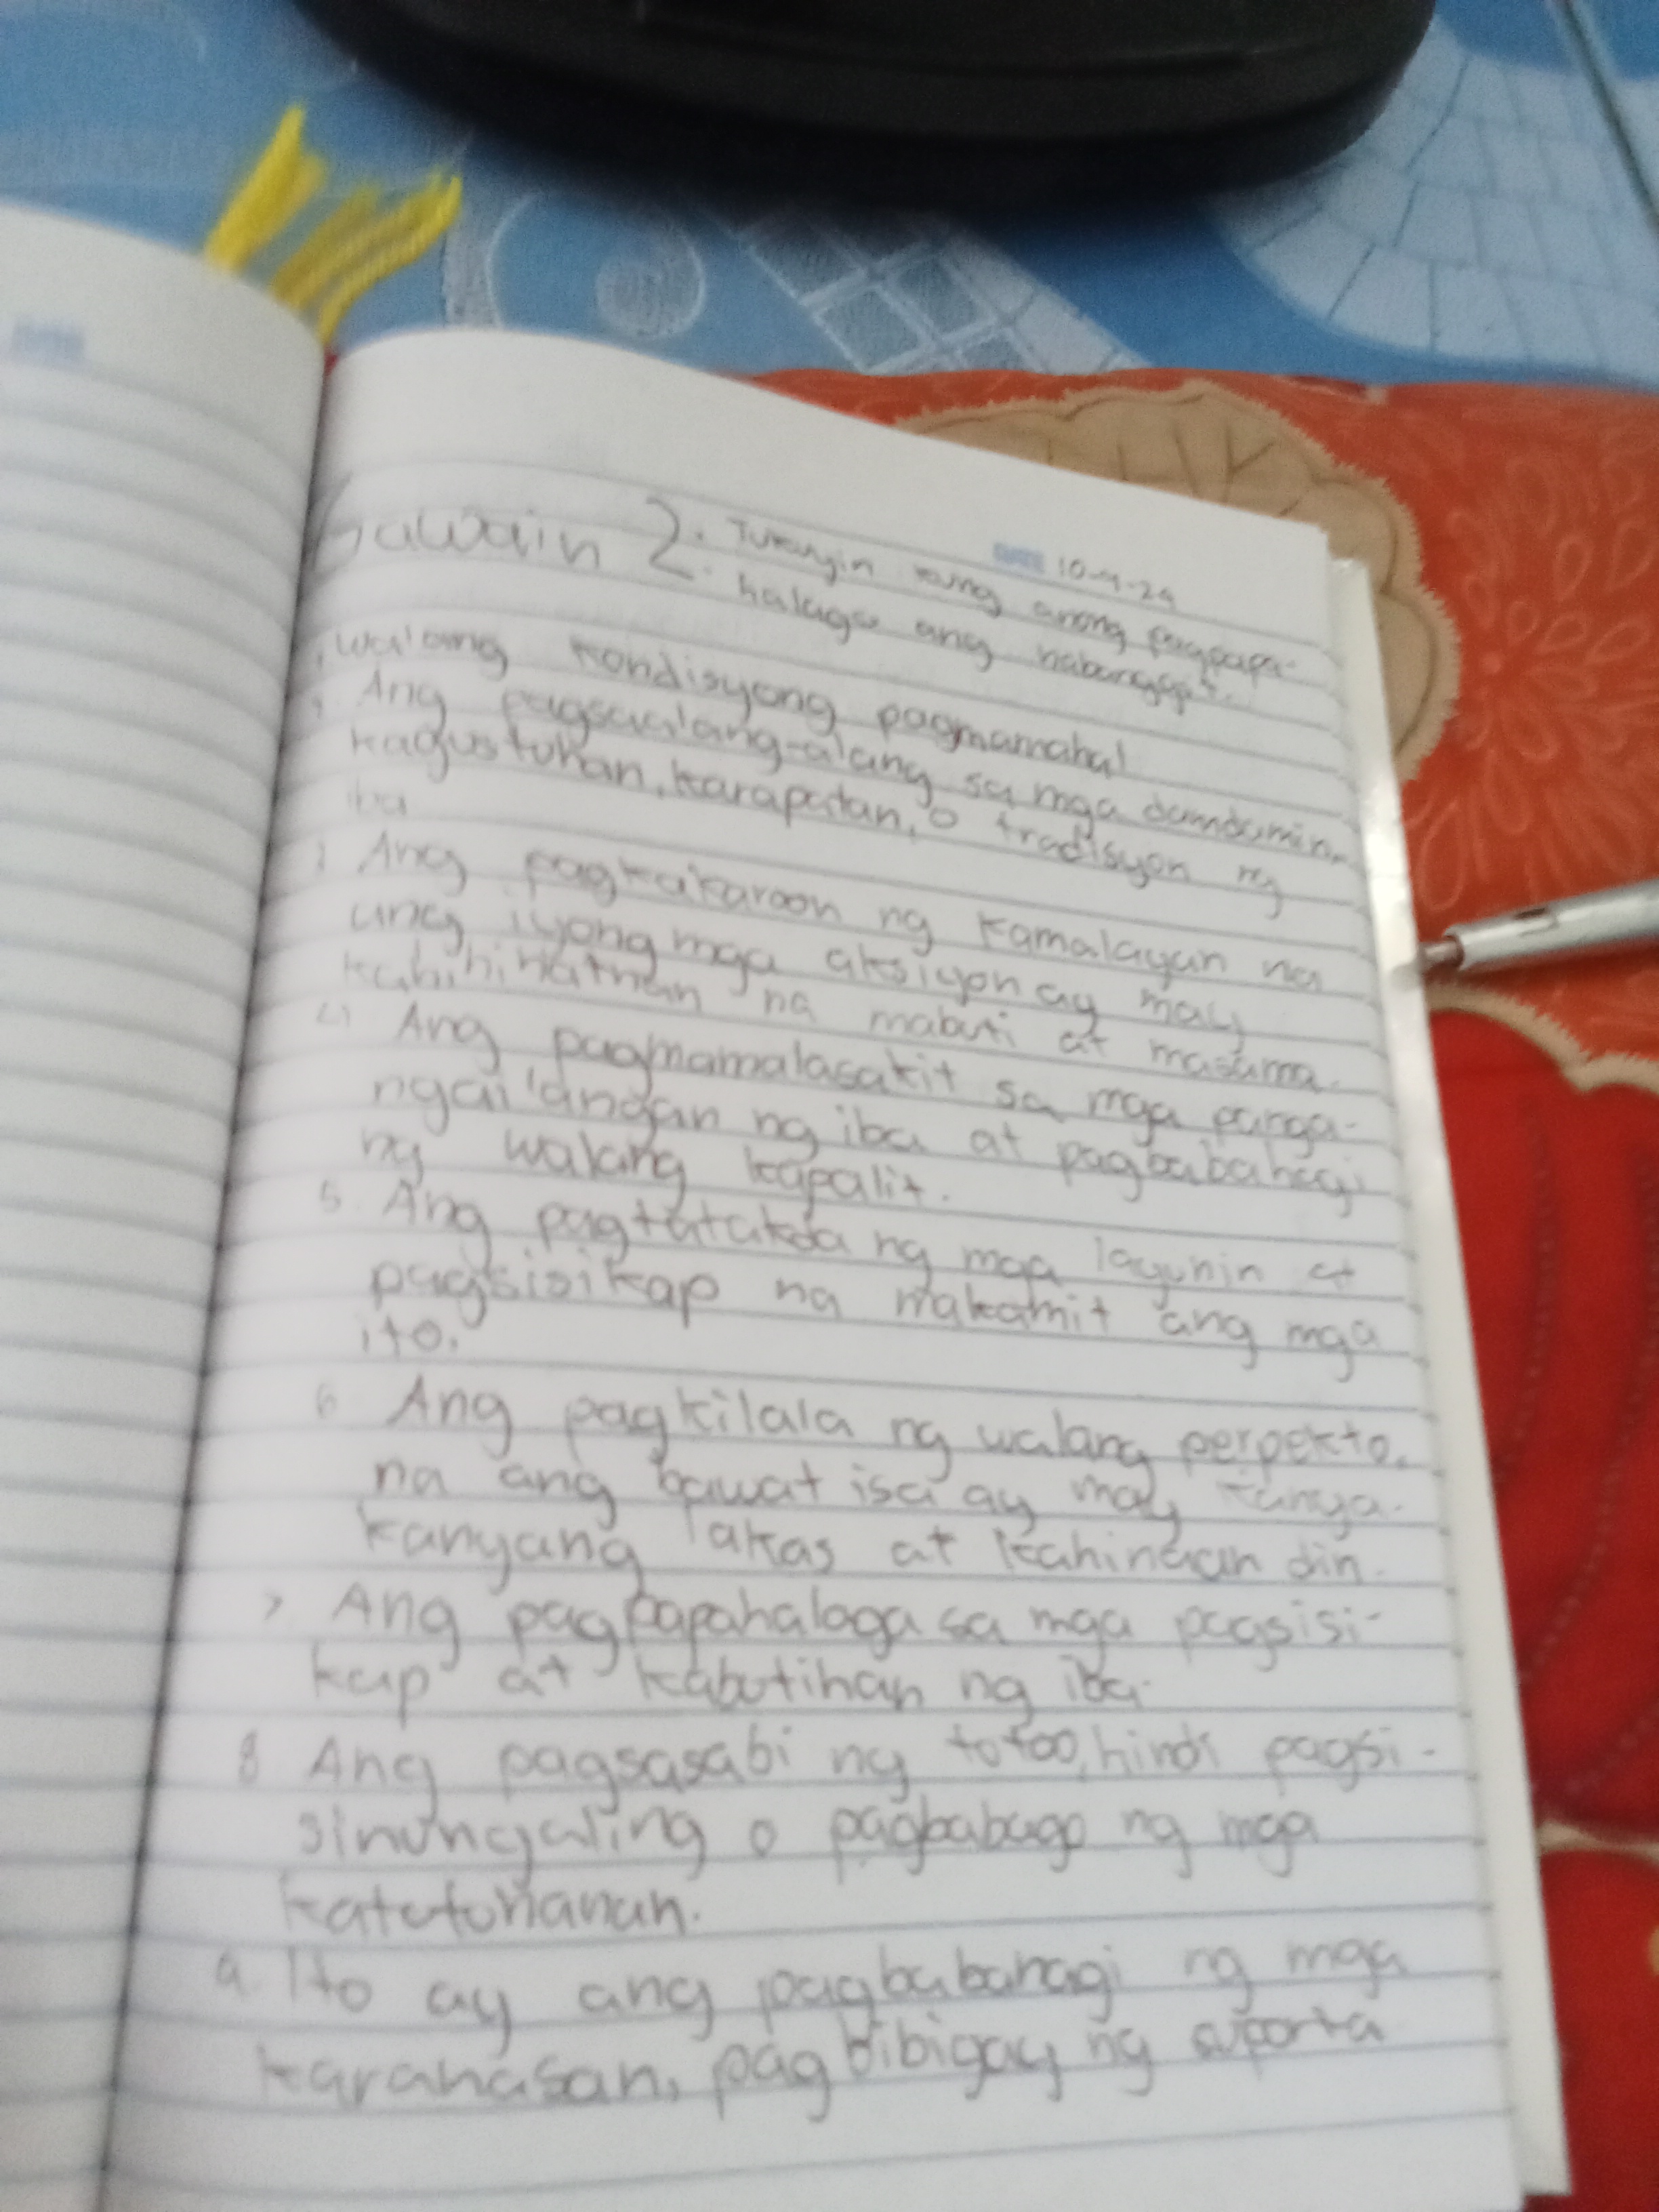 10-9-24
Gawain 2. Tukuyin kung anong pagpapa-
halaga ang nabanggit.
Walang kondisyong pagmamahal
Ang pagsaalang-alang sa mga damdamin,
kagustuhan, karapatan, o tradisyon ng
iba
3 Ang pagkakaroon ng kamalayan na
ang iyong mga aksiyon ay may
kahihinatnan na mabuti at masama.
4 Ang pagmamalasakit sa mga panga-
ngailangan ng iba at pagbabahagi
ng walang kapalit.
5. Ang pagtatakda ng mga layunin at
pagsisikap na makamit ang mga
ito.
6 Ang pagkilala ng walang perpekto,
na ang bawat isa ay may kanya-
kanyang lakas at kahinaan din.
7 Ang pagpapahalaga sa mga pagsisi-
kap at kabutihan ng iba.
8 Ang pagsasabi ng totoo, hindi pagsi-
sinungaling o pagbabago ng mga
katotohanan.
9. Ito ay ang pagbabahagi ng mga
karanasan, pagbibigay ng suporta